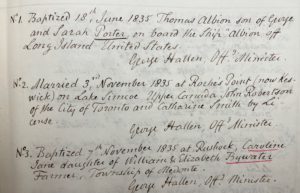 No 1. Baptized 18th, June 1835 Thomas Albion son of George
and Sarah Porter, on board the Ship Albion off
Long Island United States.
George Hallen, Offg Minister.
No 2. Married 3rd November 1835 at Roche's Point (now Kes-
wick) on Lake Simcoe Upper Canada John Robertson
of the City of Toronto and Catharine Smith by Li
cense.
George Hallen, Offg Minister.
No 3. Baptized 7th November 1835 at Rushock, Caroline
Jane daughter of William & Elizabeth Bywater
Farmer, Township of Medonte.
George Hallen, Offg Minister.